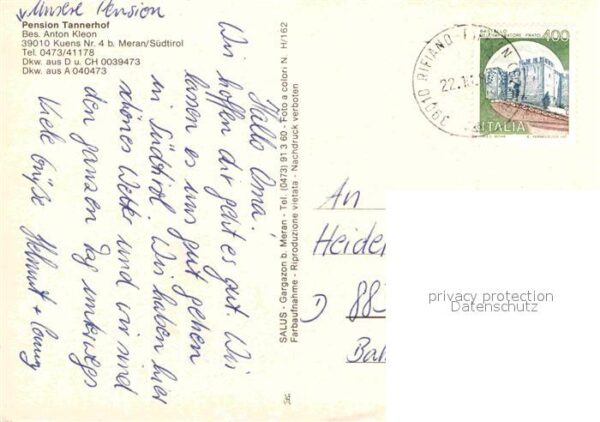 Unsere Pension
Pension Tannerhof
Bes. Anton Kleon
39010 Kuens Nr. 4 b. Meran/Südtirol
Tel. 0473/41178
Dkw. aus D u. CH 0039473
Dkw. aus A 040473
Hallo Oma!
Wir hoffen dir geht es gut. Wir
lassen es uns gut gehen
in Südtirol. Wir haben hier
schönes Wetter und wir sind
den ganzen Tag unterwegs
Viele Grüße Helmut +
SALUS - Gargazon b. Meran - Tel. (0473) 91 3 60 - Foto a colori N. H/162
Farbaufnahme - Riproduzione vietata - Nachdruck verboten
39010 RIFIANO
22.
400
ITALIA
An
Heide
D 882
Ba
privacy protection
Datenschutz